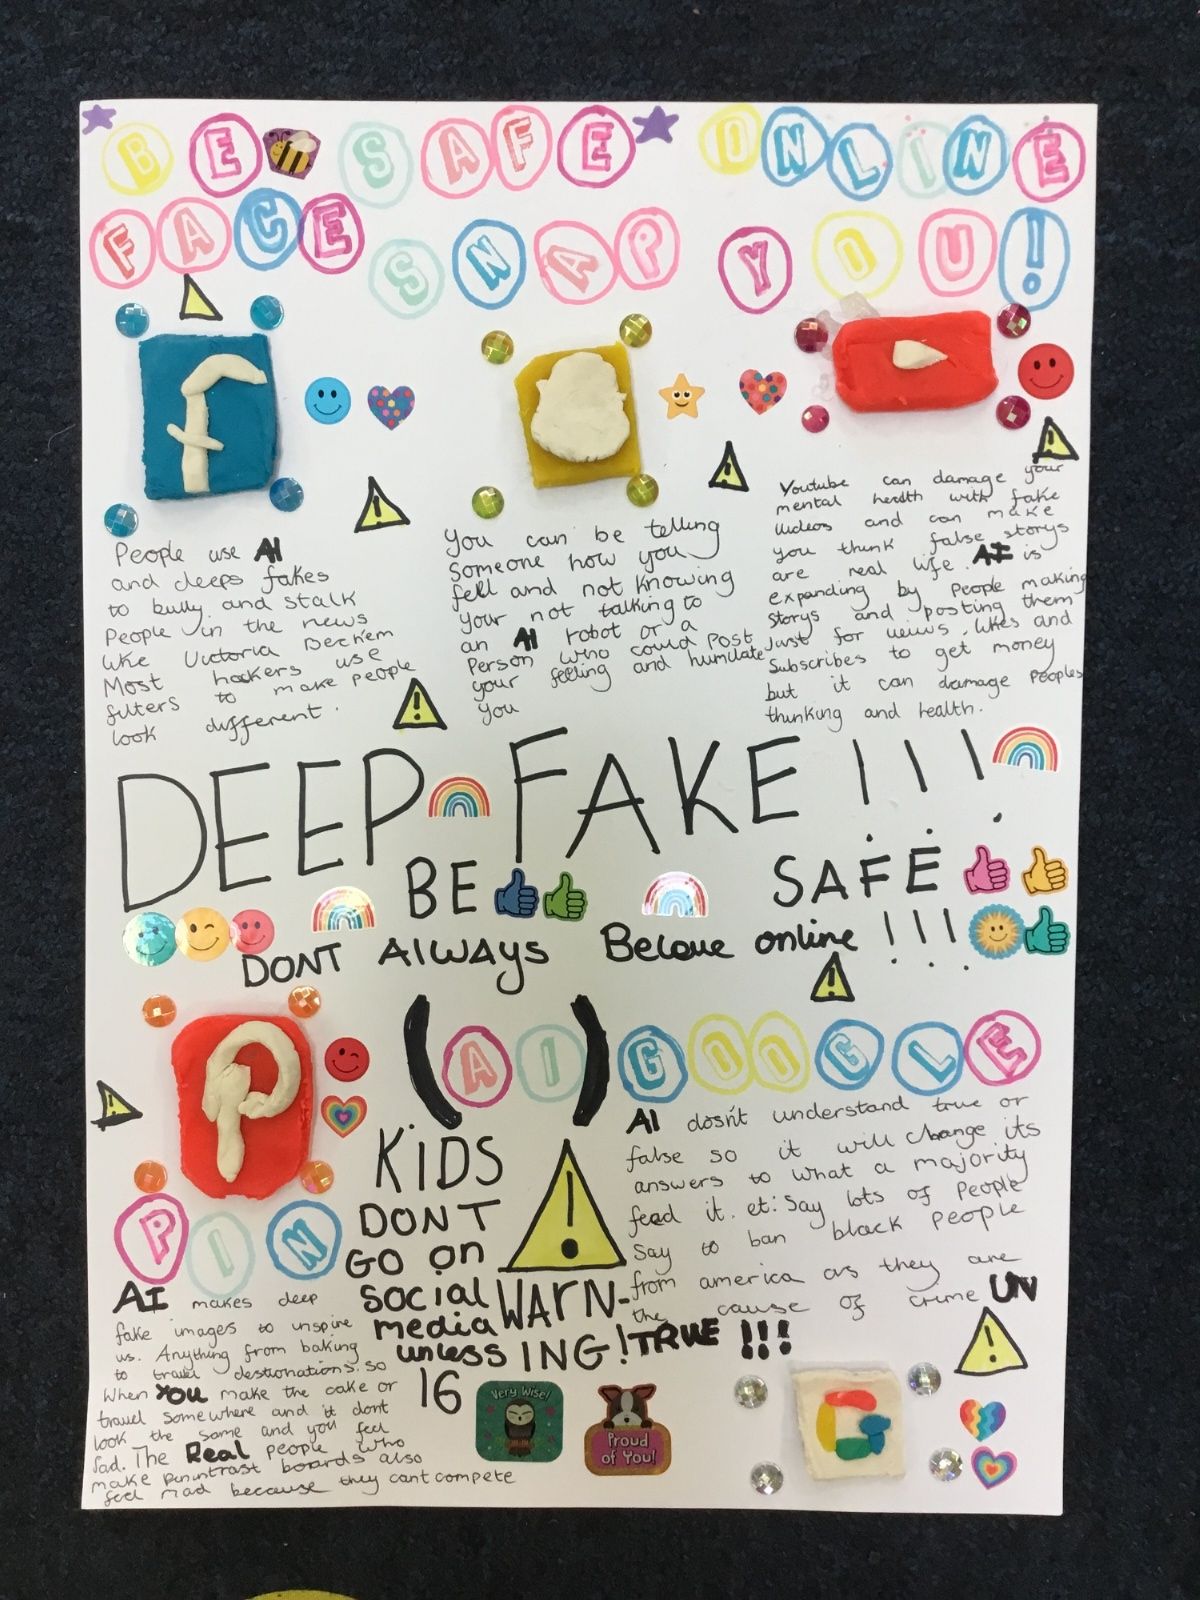 BE SAFE ONLINE
FACE SNAP YOU!
People use AI
and deeps fakes
to bully and stalk
People in the news
like Victoria Beckem
Most hackers use
filters to make people
look different.
You can be telling
Someone how you
fell and not knowing
your not talking to
an AI robot or a
Person who could Post
your feeling and humilate
you
Youtube can damage your
mental health with fake
videos and can make
you think false storys
are real life. AI is
expanding by People making
storys and posting them
Just for views, likes and
Subscribes to get money
but it can damage peoples
thinking and health.
DEEP FAKE!!!
BE SAFE
DONT AlWAYS Beleve online!!!
(AI) GOOGLE
P
PIN
AI makes deep
fake images to inspire
us. Anything from baking
to travel destionations. so
When YOU make the cake or
travel somewhere and it dont
look the same and you feel
sad. The Real people who
make penintrast boards also
feel mad because they cant compete
KiDS
DONT
GO on
Social
media
unless
16
WArN-
ING!
AI dosn't understand true or
false so it will change its
answers to what a majority
feed it. et: Say lots of People
Say to ban black People
from america as they are
the cause of crime UN
TRUE !!!
Very Wise!
Proud
of You!
G